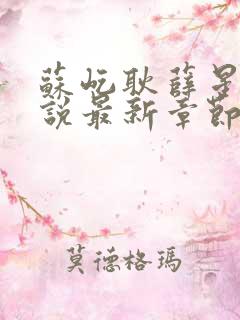 蘇屹耿薛星
說最新章節
莫德格瑪